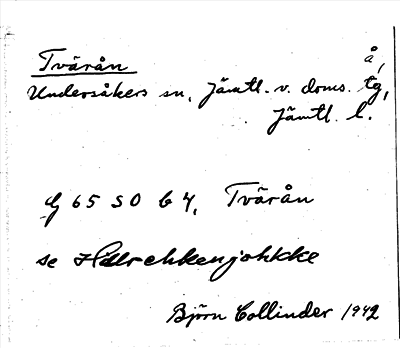 Tvärån å,
Undersåkers sn, Jämtl. v. doms. tg,
Jämtl. l.
G 65 SO b 4, Tvärån
se
Björn Collinder 1942